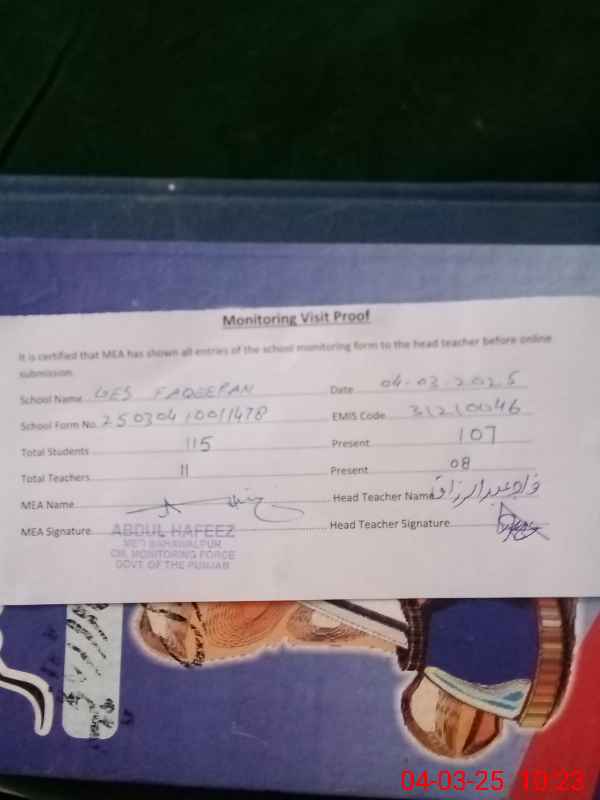 Monitoring Visit Proof
It is certified that MEA has shown all entries of the school monitoring form to the head teacher before online
submission.
School Name GES FAQEERAN Date 04-03-2025
School Form No. 25030410011478 EMIS Code 31210046
Total Students 115 Present 107
Total Teachers 11 Present 08
MEA Name Head Teacher Name عبدالرزاق
MEA Signature ABDUL HAFEEZ Head Teacher Signature
MEO BAHAWALPUR
CM, MONITORING FORCE
GOVT OF THE PUNJAB
04-03-25 10:23